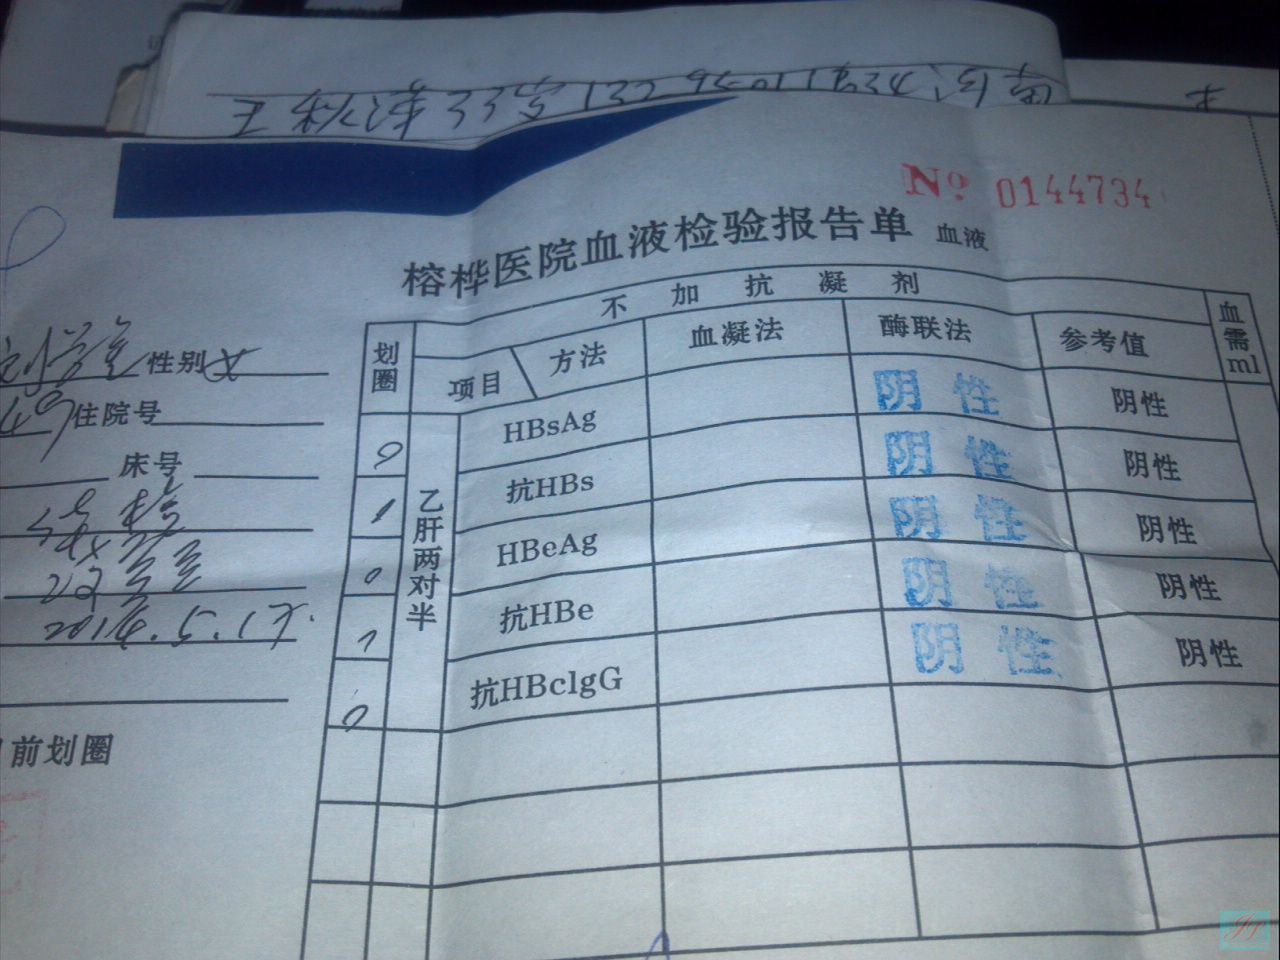 33岁
No 0144734
榕桦医院血液检验报告单 血液
性别 女
住院号
床号
2014.5.17.
前划圈
划圈 不加抗凝剂 血需ml
项目 方法 血凝法 酶联法 参考值
乙肝两对半
HBsAg 阴性 阴性
抗HBs 阴性 阴性
HBeAg 阴性 阴性
抗HBe 阴性 阴性
抗HBclgG 阴性 阴性